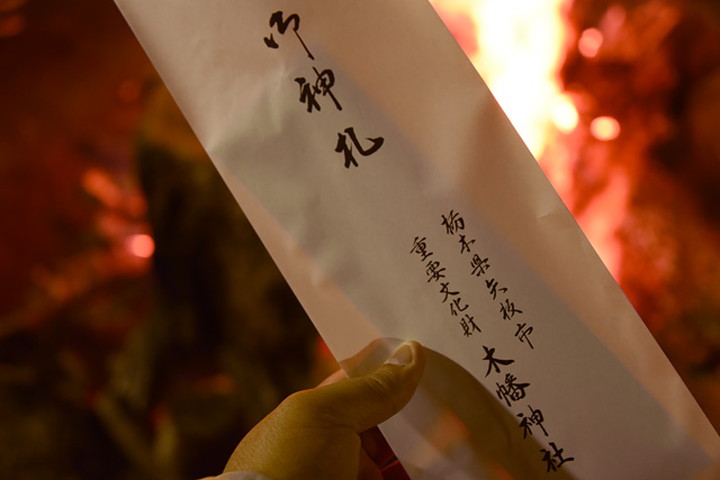 御神札
栃木県矢板市
重要文化財
木幡神社